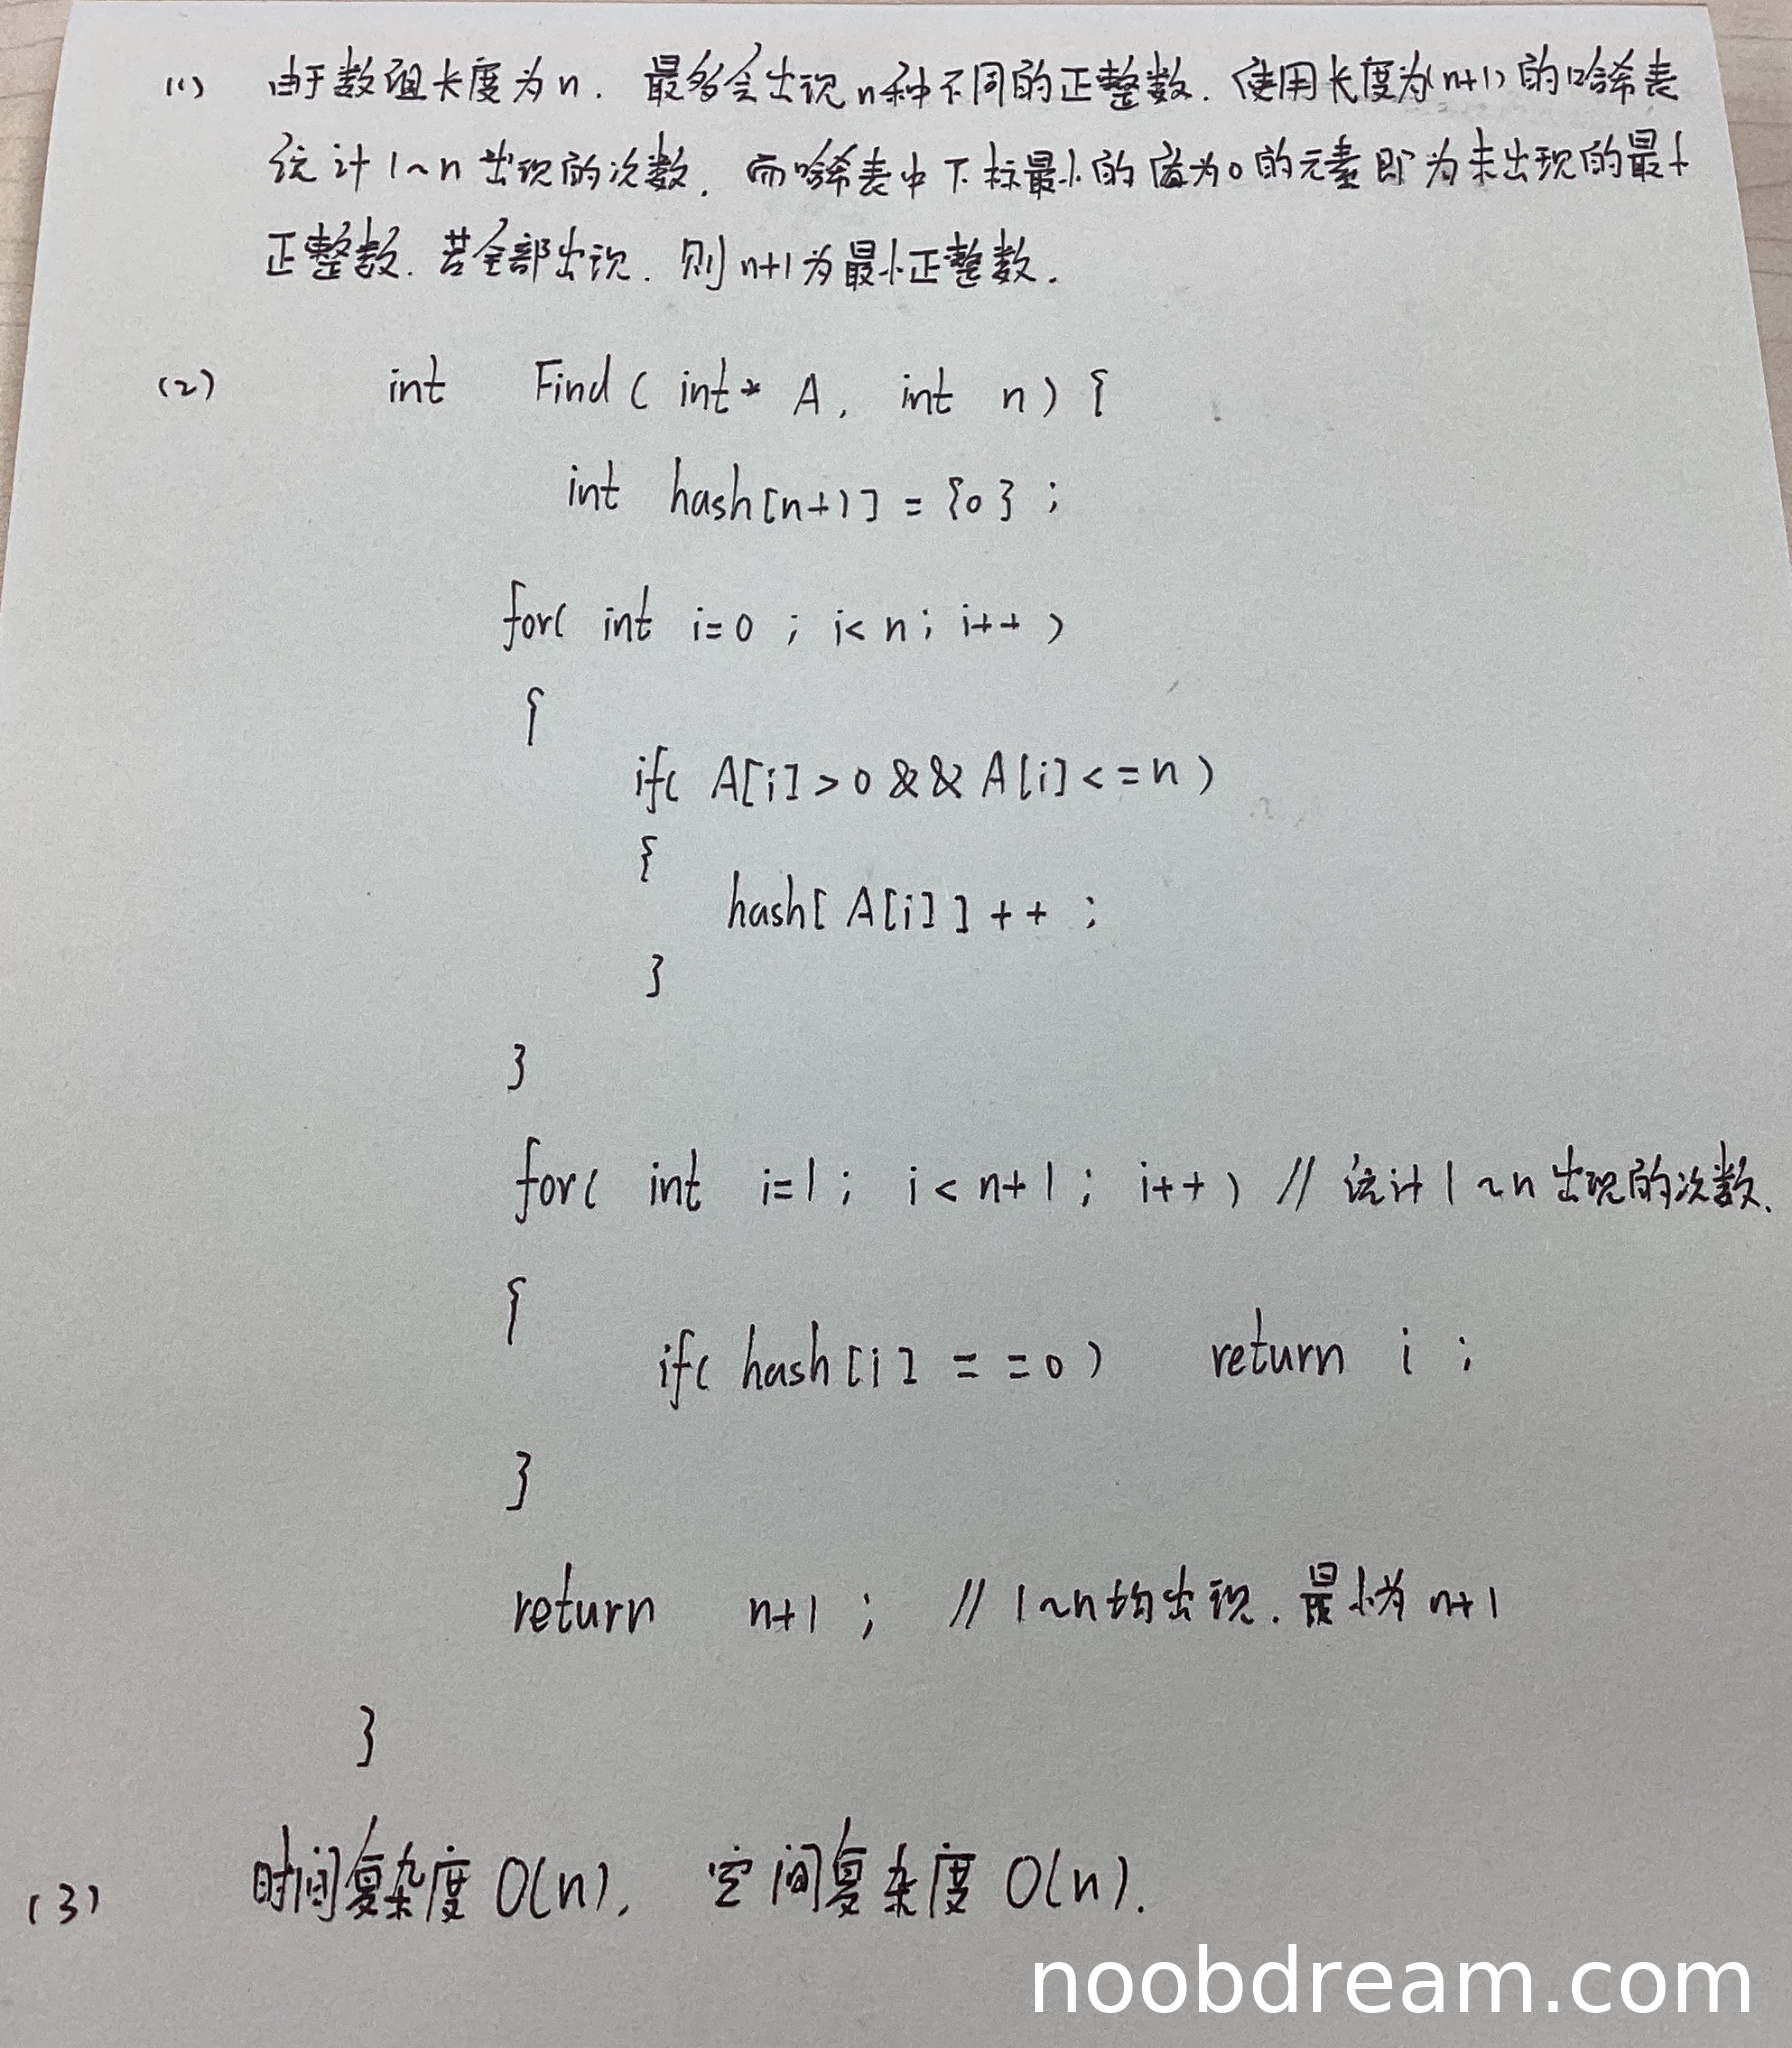 (1) 由于数组长度为n. 最多会出现n种不同的正整数. 使用长度为(n+1)的哈希表
统计1~n出现的次数. 而哈希表中下标最小的值为0的元素即为未出现的最小
正整数. 若全部出现. 则n+1为最小正整数.
(2) int Find( int* A, int n) {
int hash[n+1] = {0} ;
for( int i=0 ; i<n ; i++ )
{
if( A[i]>0 && A[i]<=n )
{
hash[ A[i] ]++ ;
}
}
for( int i=1 ; i<n+1 ; i++ ) // 统计1~n出现的次数.
{
if( hash[i] ==0 ) return i ;
}
return n+1 ; // 1~n均出现. 最小为n+1
}
(3) 时间复杂度O(n), 空间复杂度O(n).
noobdream.com